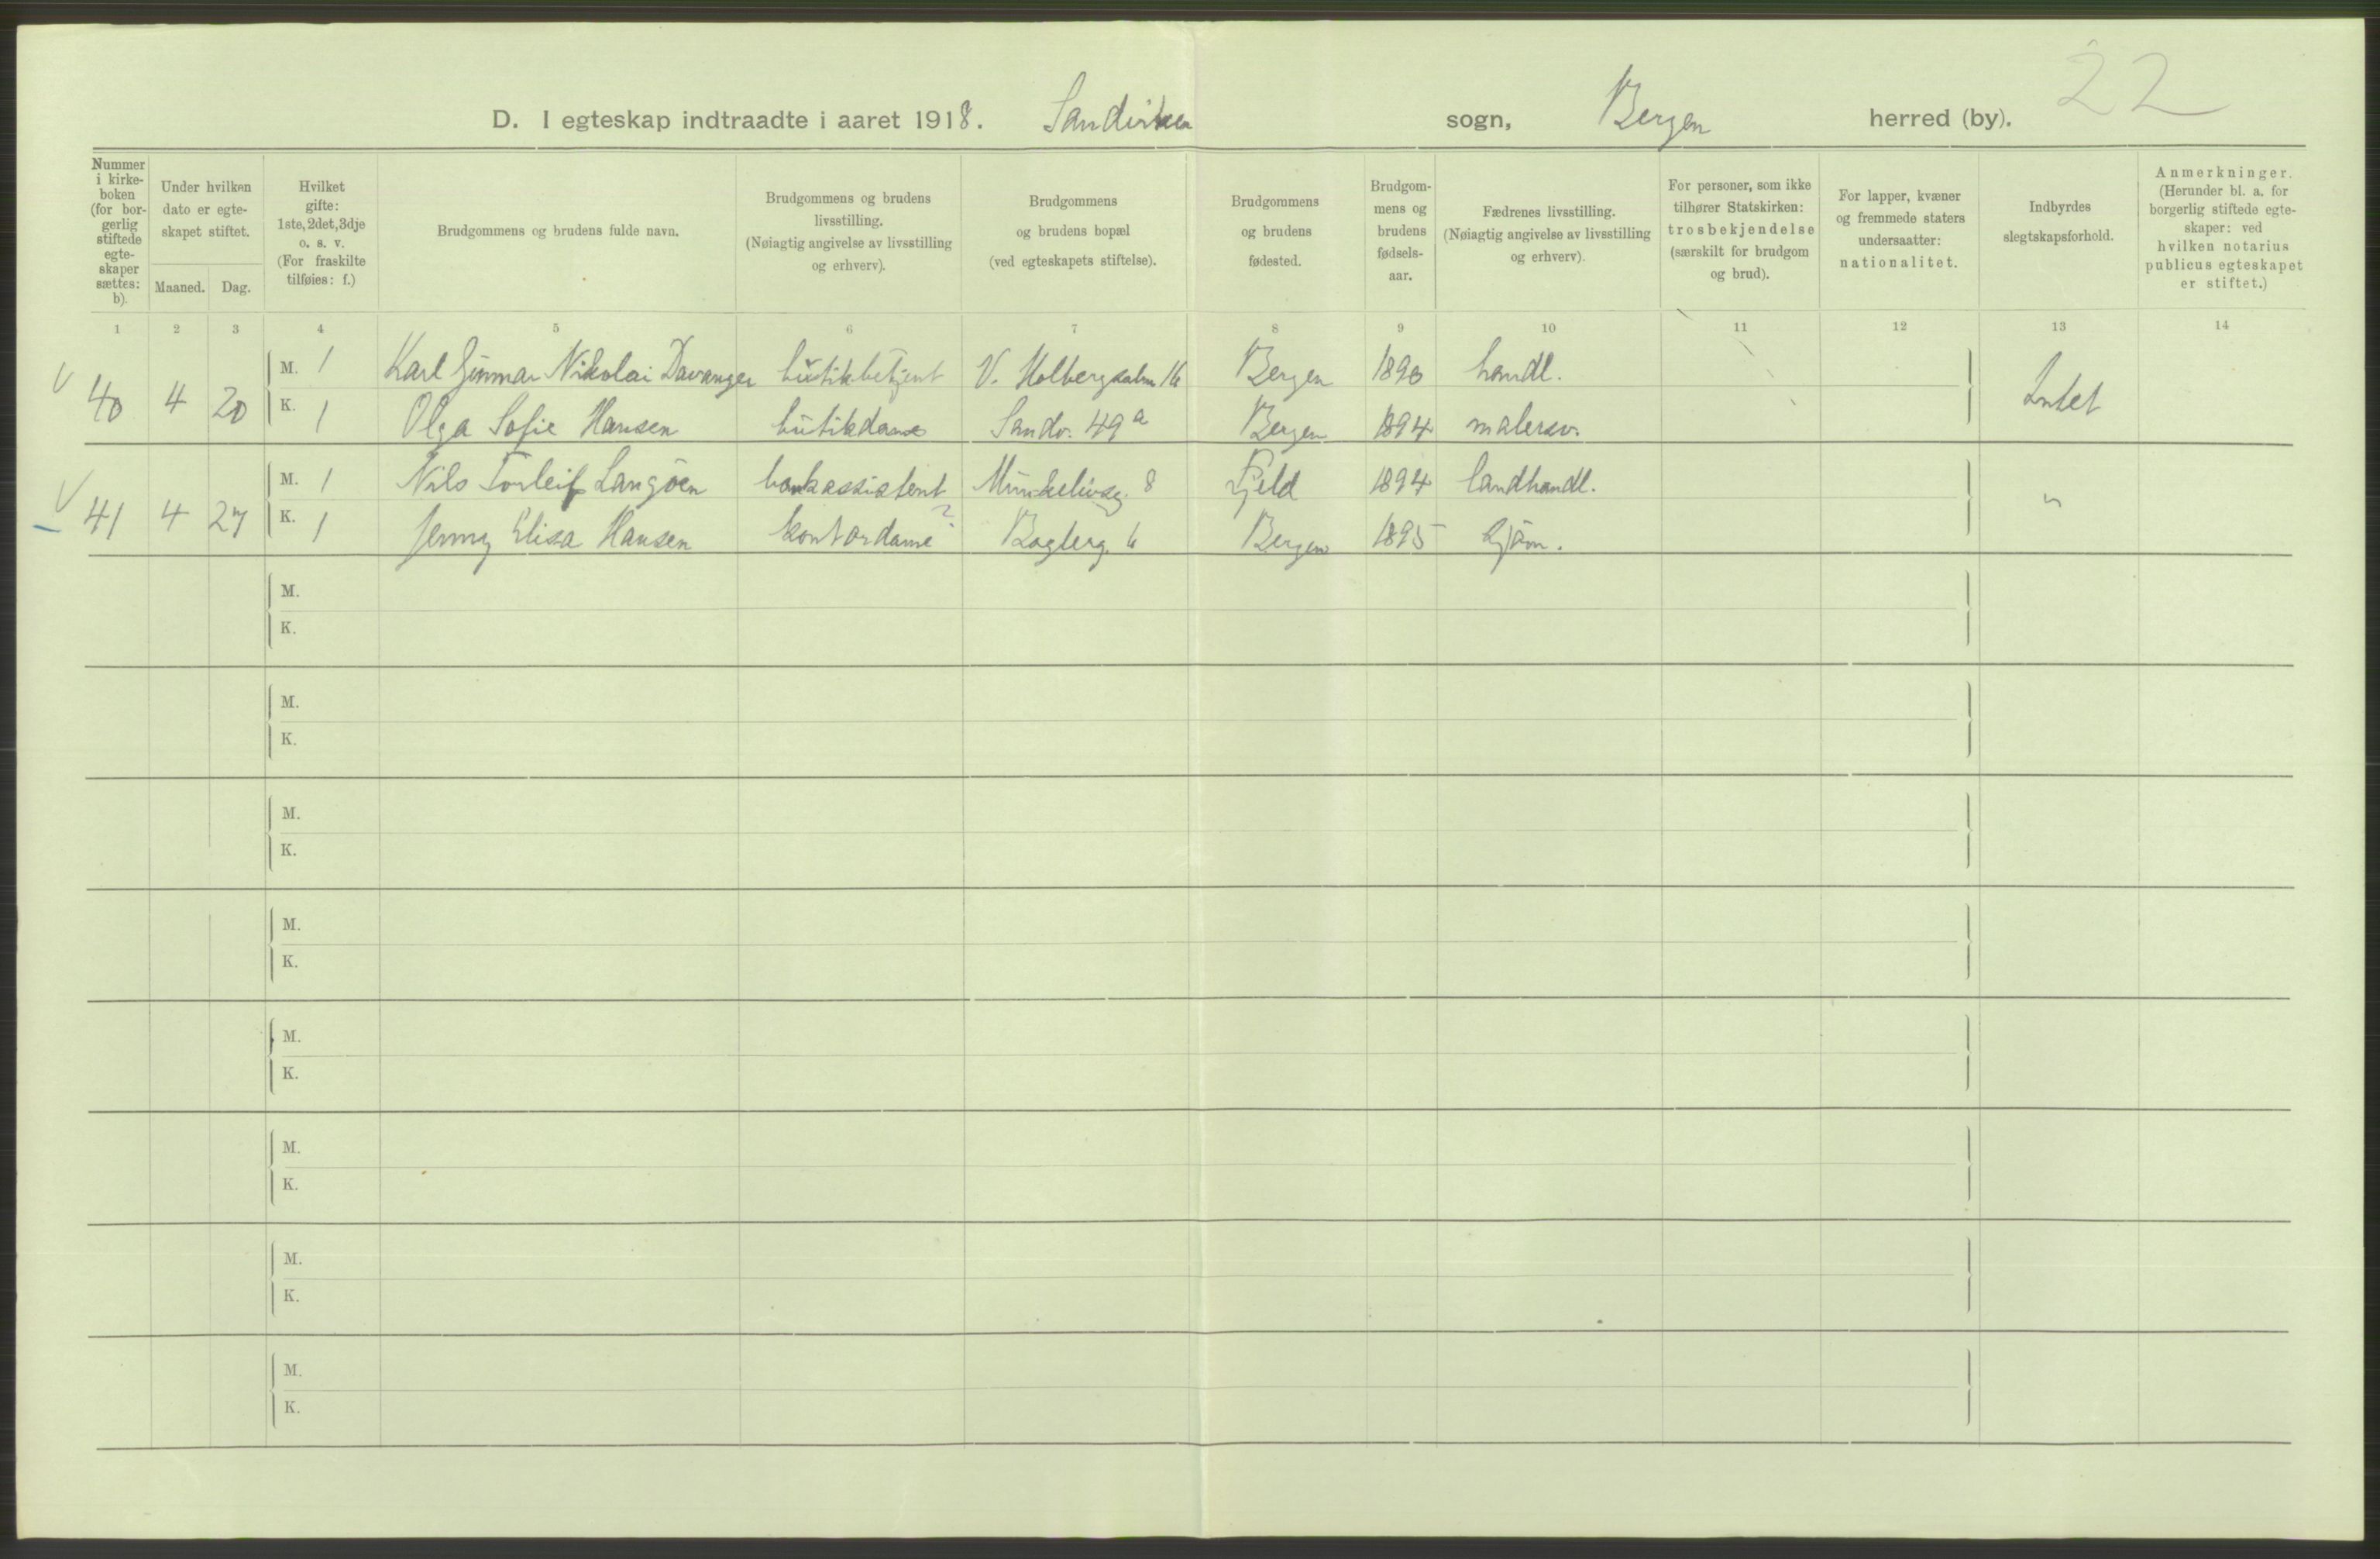 22
D. I egteskap indtraadte i aaret 1918. Sandviken sogn, Bergen herred (by).
Nummer i kirke-boken (for bor-gerlig stiftede egte-skaper sættes: b).
Under hvilken dato er egte-skapet stiftet.
Maaned. Dag.
Hvilket gifte: 1ste, 2det, 3dje o. s. v. (For fraskilte tilføies: f.)
Brudgommens og brudens fulde navn.
Brudgommens og brudens livsstilling. (Nøiagtig angivelse av livsstilling og erhverv).
Brudgommens og brudens bopæl (ved egteskapets stiftelse).
Brudgommens og brudens fødested.
Brudgom-mens og brudens fødsels-aar.
Fædrenes livsstilling. (Nøiagtig angivelse av livsstilling og erhverv).
For personer, som ikke tilhører Statskirken: trosbekjendelse (særskilt for brudgom og brud).
For lapper, kvæner og fremmede staters undersaatter: nationalitet.
Indbyrdes slegtskapsforhold.
Anmerkninger. (Herunder bl. a. for borgerlig stiftede egte-skaper: ved hvilken notarius publicus egteskapet er stiftet.)
1 2 3 4 5 6 7 8 9 10 11 12 13 14
40 4 20 M. 1 Karl Gunmar Nikolai Davanger butikbetjent V. Holbergsalm 16 Bergen 1890 handl. Intet
K. 1 Olga Sofie Hansen butikdame Sandv. 49a Bergen 1894 malersv.
41 4 27 M. 1 Nils Torleif Langöen bankassistent Munkelivsg. 8 Fjeld 1894 landhandl. "
K. 1 Jenny Elisa Hansen kontordame ? Bergen 1895
M.
K.
M.
K.
M.
K.
M.
K.
M.
K.
M.
K.
M.
K.
M.
K.